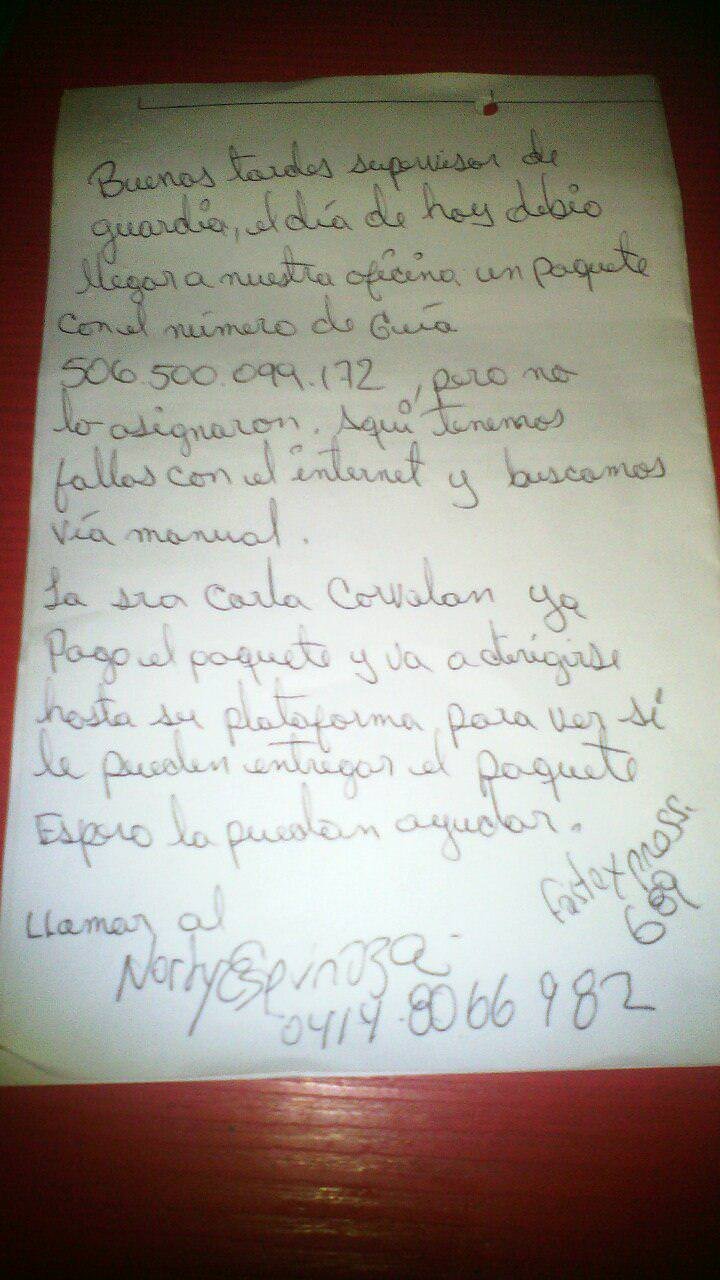 Buenas tardes supervisor de
guardia, el día de hoy debio
llegar a nuestra oficina un paquete
con el número de Guía
506.500.099.172, pero no
lo asignaron. Aquí tenemos
fallas con el internet y buscamos
vía manual.
La sra Carla Corvalan ya
Pago el paquete y va a dirigirse
hasta su plataforma para ver si
le pueden entregar el paquete
Espero la puedan ayudar.
Fastexpress.
689
Llamar al
Norby Espinoza
0414.8066982